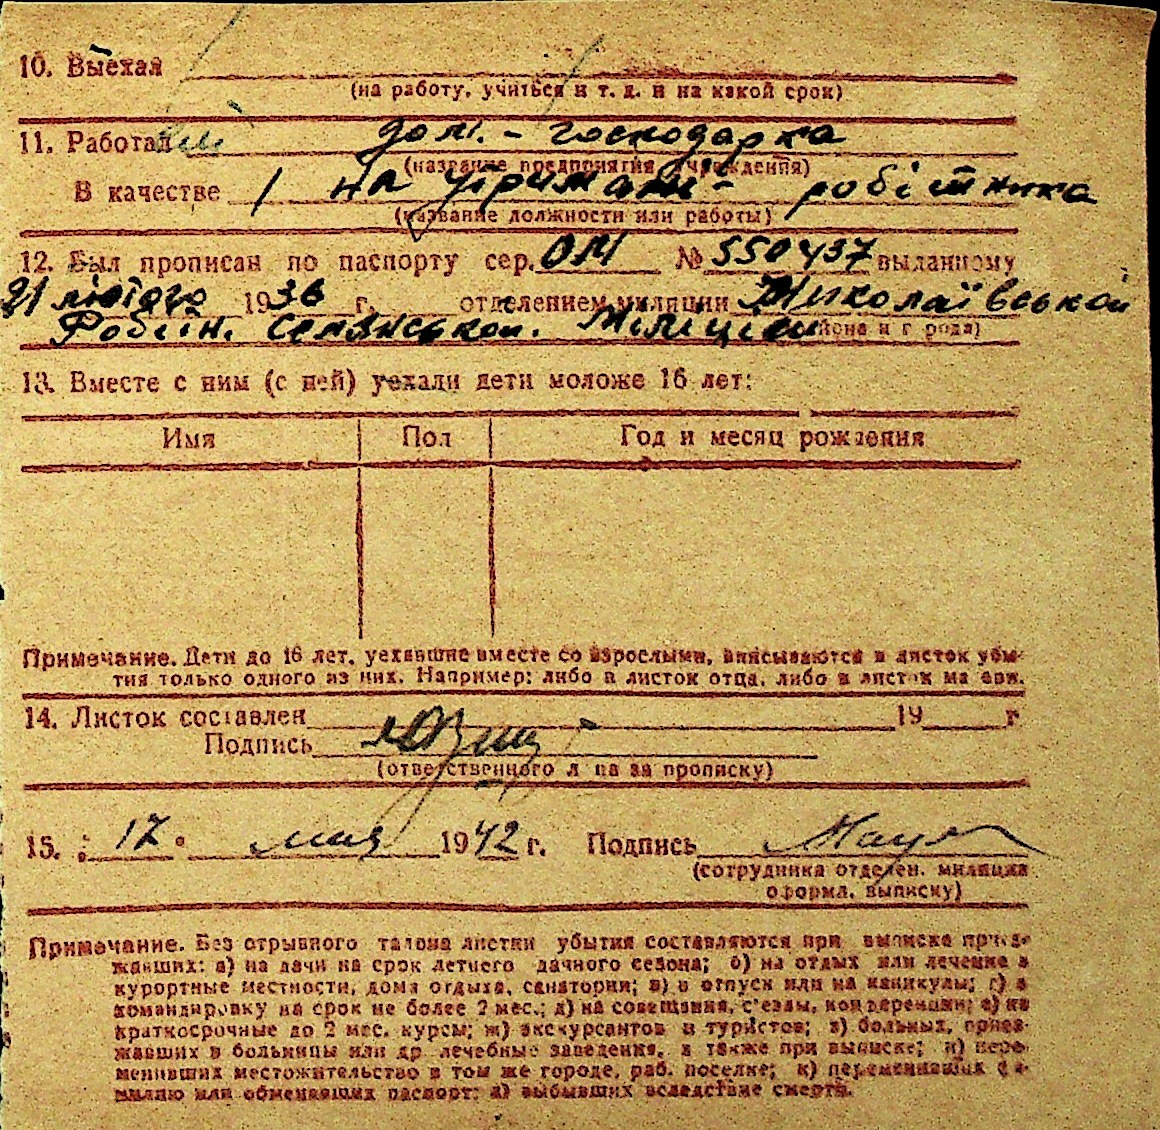 10. Выехал
(на работу, учиться и т. д. и на какой срок)
11. Работал дом. - господарка
(название предприятия учреждения)
В качестве на утриман- робітника
(название должности или работы)
12. Был прописан по паспорту сер. ОМ № 550437 выданному
21 лютого 1936 г. отделением милиции Миколаївської
Робітн. Селянської. Міліціи района и города)
13. Вместе с ним (с ней) уехали дети моложе 16 лет:
Имя Пол Год и месяц рождения
Примечание. Дети до 16 лет, уехавшие вместе со взрослыми, вписываются в листок убы-
тия только одного из них. Например: либо в листок отца, либо в листок матери.
14. Листок составлен 19 г
Подпись
(ответственного лица за прописку)
15. 17 мая 1942 г. Подпись
(сотрудника отделен. милиции
оформл. выписку)
Примечание. Без отрывного талона листки убытия составляются при выписке приез-
жавших: а) на дачи на срок летнего дачного сезона; б) на отдых или лечение в
курортные местности, дома отдыха, санатории; в) в отпуск или на каникулы; г) в
командировку на срок не более 2 мес.; д) на совещания, с'езды, конференции; е) на
краткосрочные до 2 мес. курсы; ж) экскурсантов и туристов; з) больных, приез-
жавших в больницы или др лечебные заведения, а также при выписке; и) пере-
менивших местожительство в том же городе, раб. поселке; к) переменивших фа-
милию или обменявших паспорт; л) выбывших вследствие смерти.